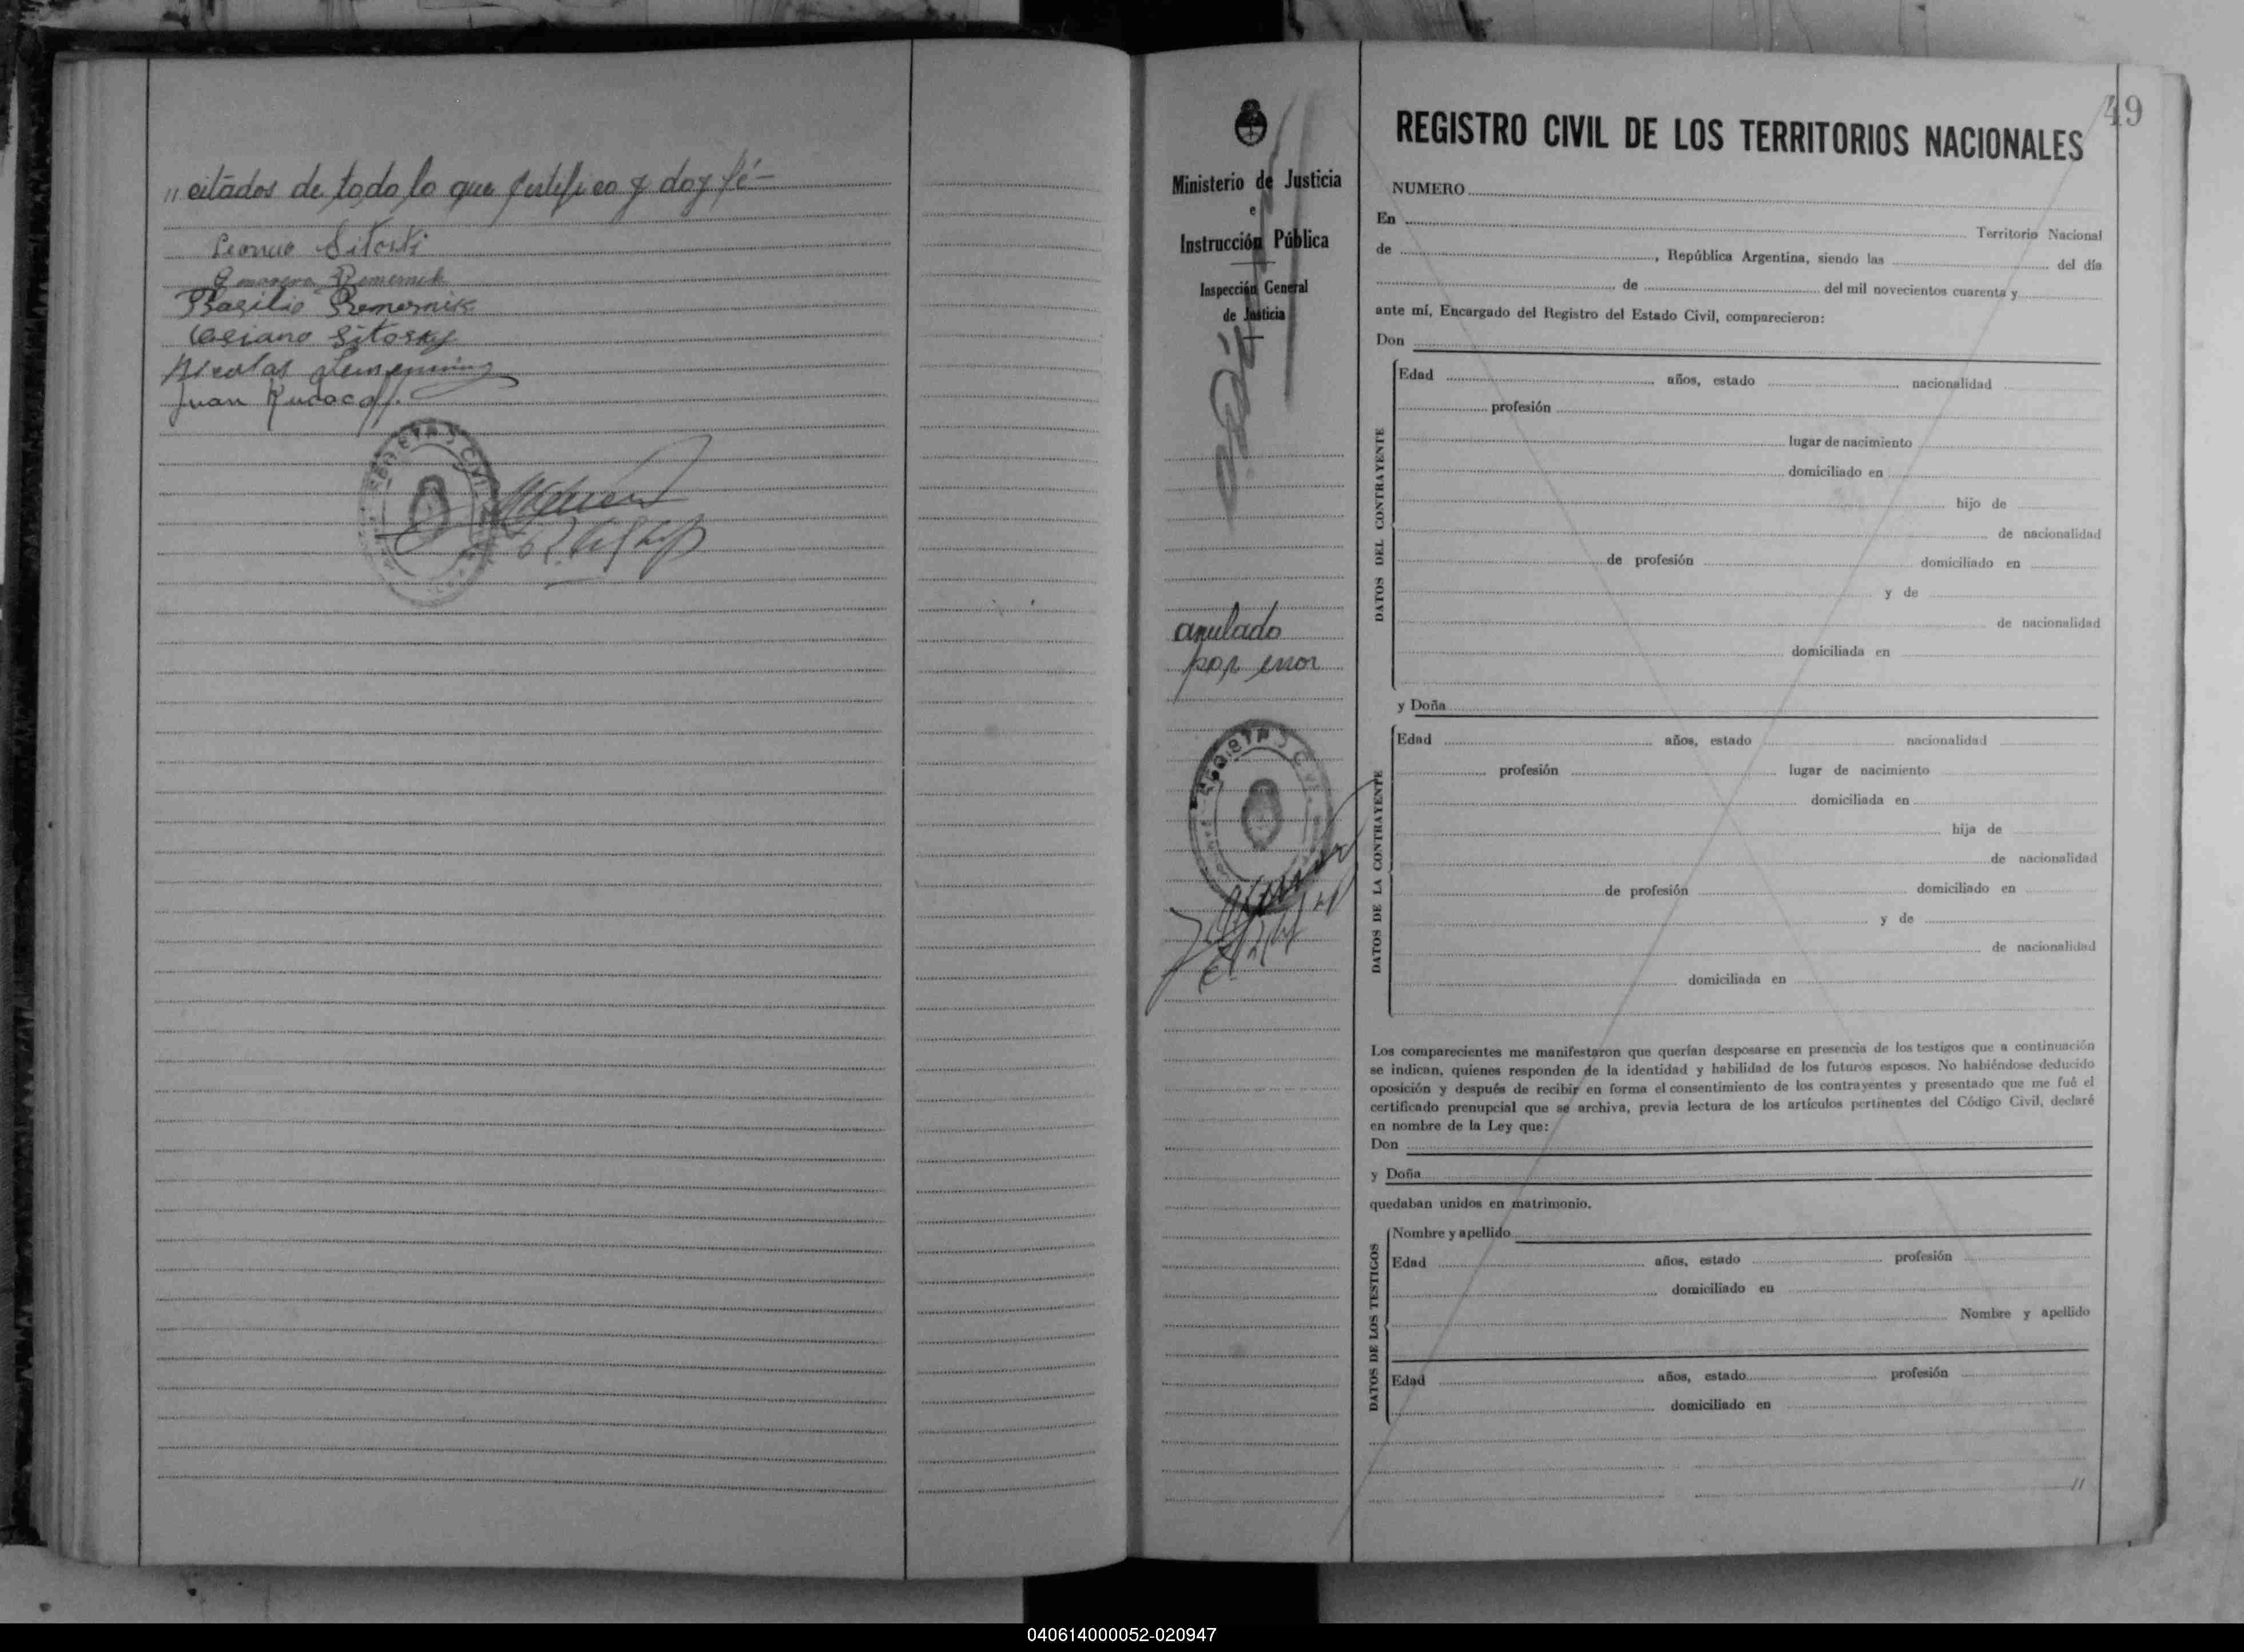 " citados de todo lo que certifico y doy fé-
Sitoski
Basilio Remesnik
Casiano Sitosky
Nicolas
Juan
REGISTRO CIVIL
49
Ministerio de Justicia
e
Instrucción Pública
Inspección General
de Justicia
anulado
por error
REGISTRO CIVIL
REGISTRO CIVIL DE LOS TERRITORIOS NACIONALES
NUMERO
En Territorio Nacional
de , República Argentina, siendo las del día
de del mil novecientos cuarenta y
ante mí, Encargado del Registro del Estado Civil, comparecieron:
Don
DATOS DEL CONTRAYENTE
Edad años, estado nacionalidad
profesión
lugar de nacimiento
domiciliado en
hijo de
de nacionalidad
de profesión domiciliado en
y de
de nacionalidad
domiciliada en
y Doña
DATOS DE LA CONTRAYENTE
Edad años, estado nacionalidad
profesión lugar de nacimiento
domiciliada en
hija de
de nacionalidad
de profesión domiciliado en
y de
de nacionalidad
domiciliada en
Los comparecientes me manifestaron que querían desposarse en presencia de los testigos que a continuación
se indican, quienes responden de la identidad y habilidad de los futuros esposos. No habiéndose deducido
oposición y después de recibir en forma el consentimiento de los contrayentes y presentado que me fué el
certificado prenupcial que se archiva, previa lectura de los artículos pertinentes del Código Civil, declaré
en nombre de la Ley que:
Don
y Doña
quedaban unidos en matrimonio.
DATOS DE LOS TESTIGOS
Nombre y apellido
Edad años, estado profesión
domiciliado en
Nombre y apellido
Edad años, estado profesión
domiciliado en
"
040614000052-020947